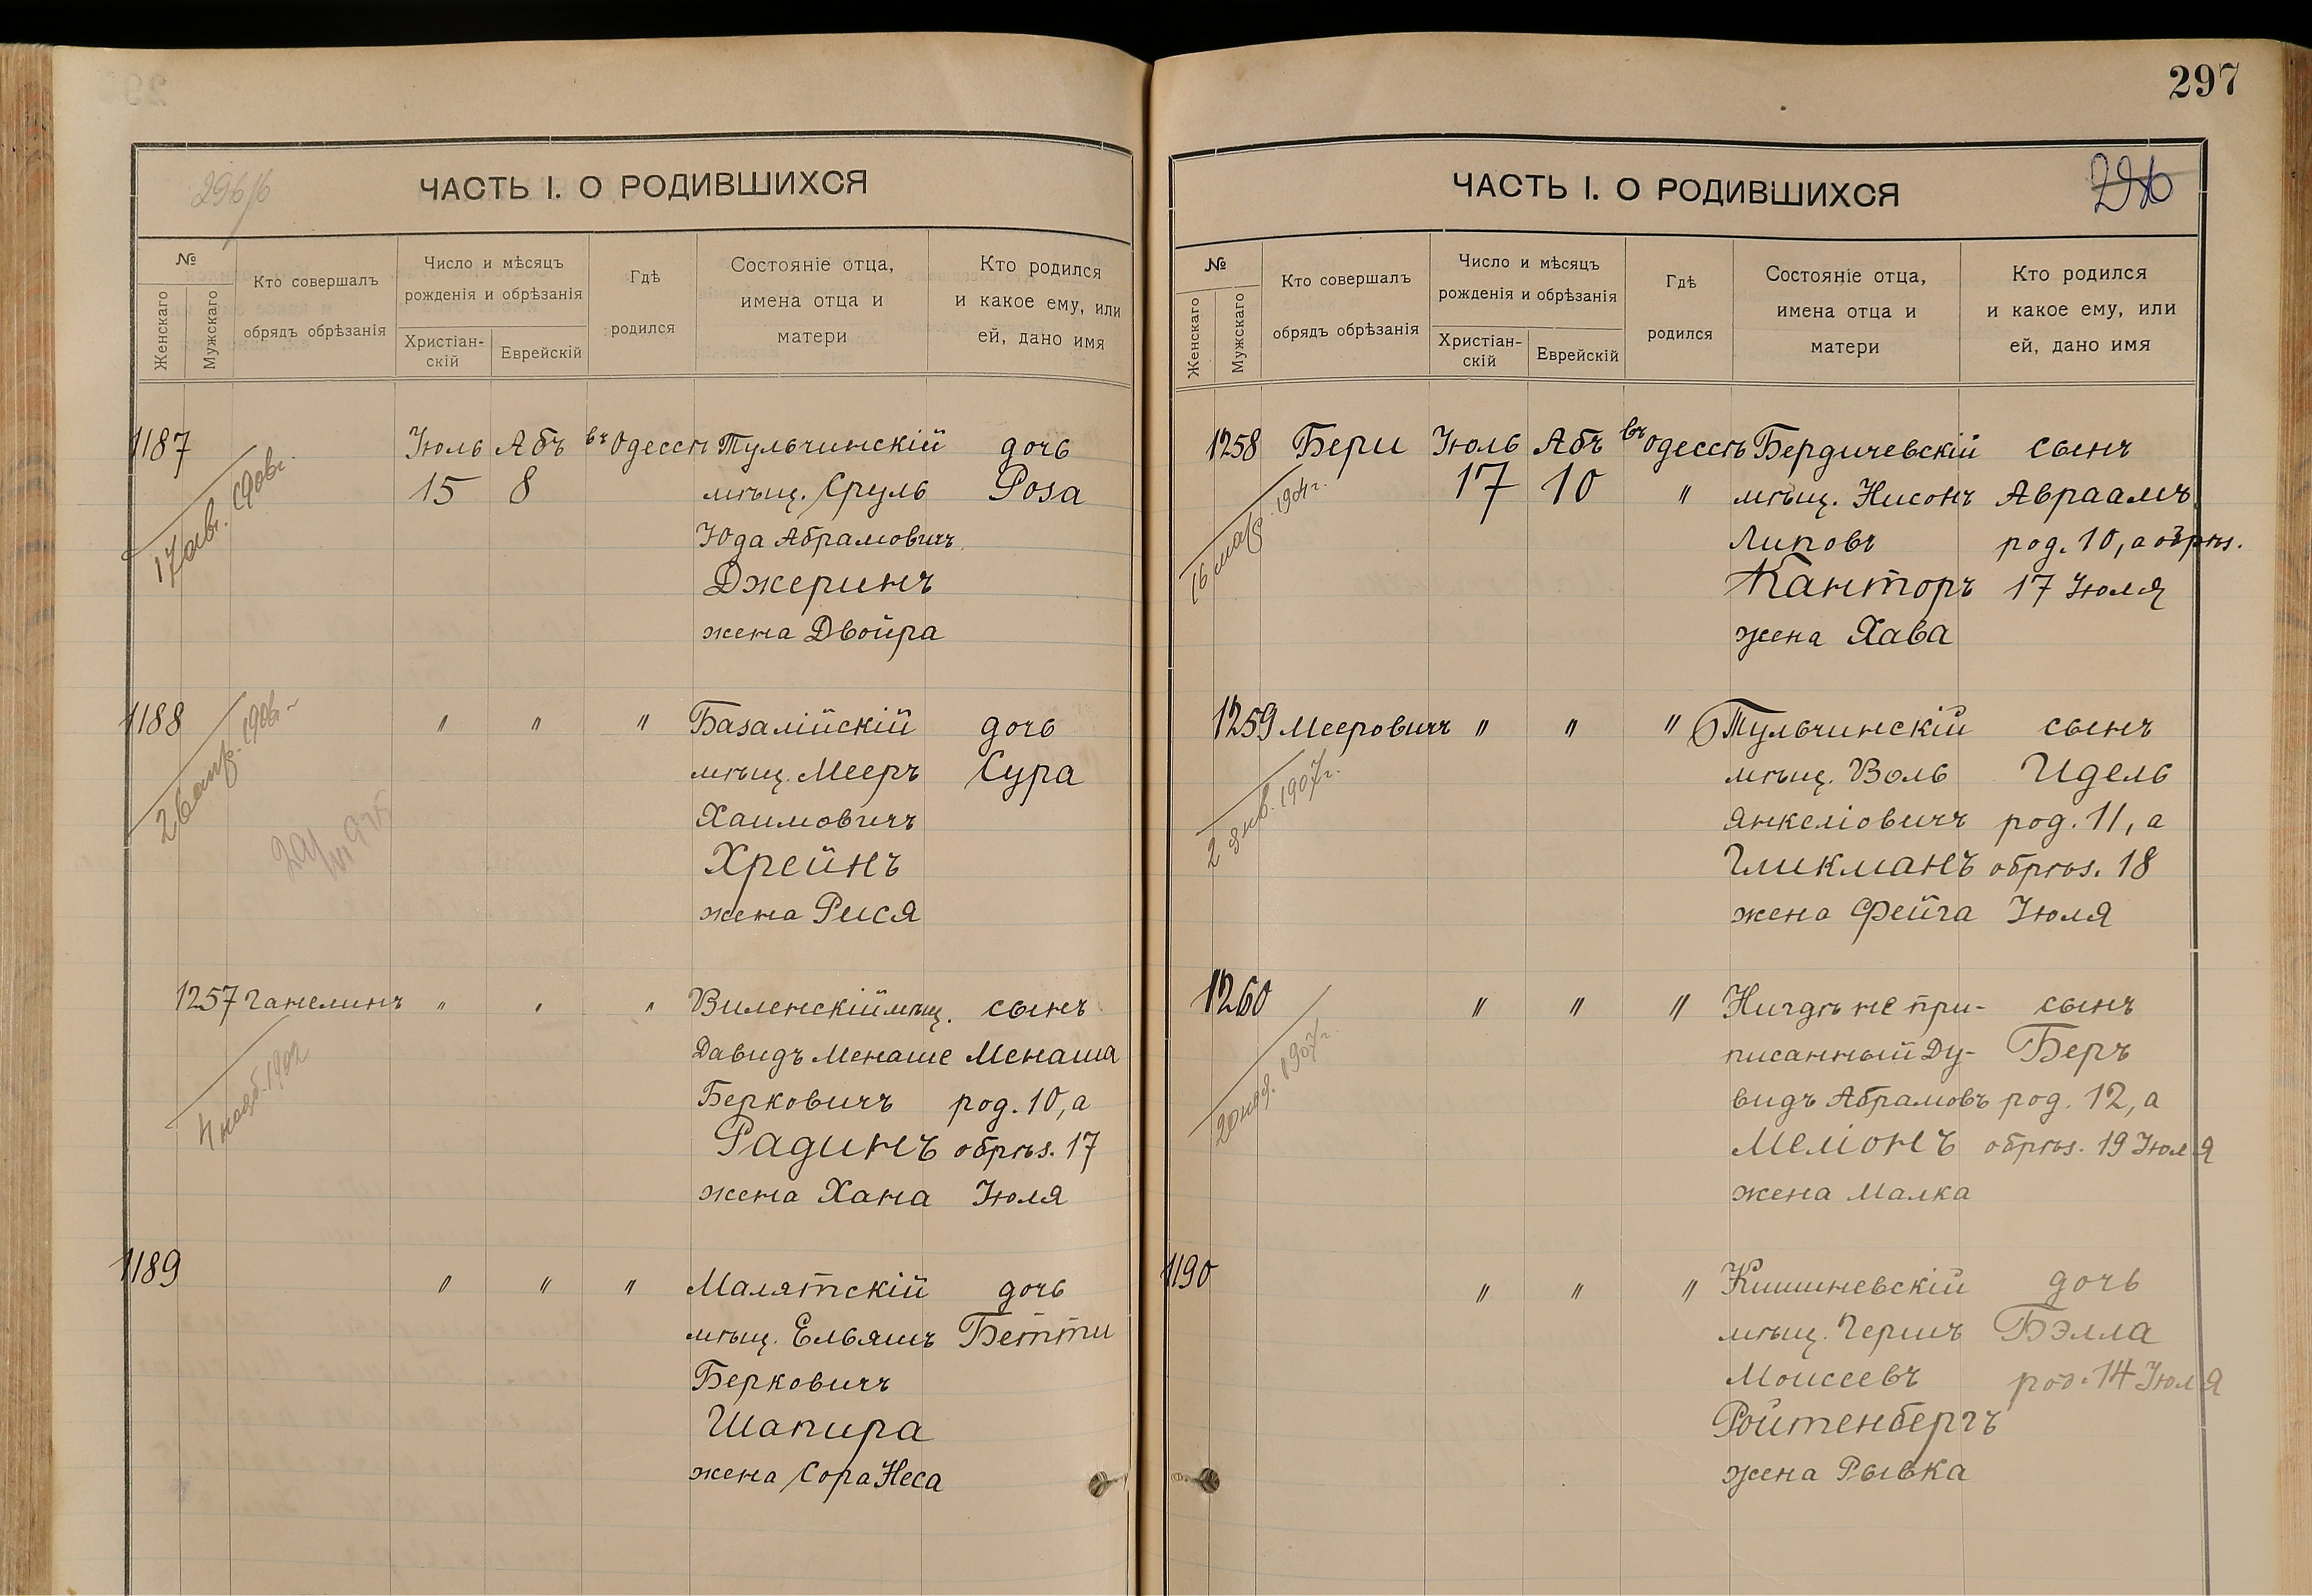 297
ЧАСТЬ I. О РОДИВШИХСЯ
№
Женскаго
Мужскаго
Кто совершалъ
обрядъ обрѣзанія
Число и мѣсяцъ
рожденія и обрѣзанія
Христіан-
скій
Еврейскій
Гдѣ
родился
Состояніе отца,
имена отца и
матери
Кто родился
и какое ему, или
ей, дано имя
1187 Іюль Абъ въ Одессѣ Тульчинскій дочь
15 8 мѣщ. Сруль Роза
Юда Абрамовичъ
Джеринъ
жена Двойра
17 авг. 1906г.
1188 〃 〃 〃 Базалійскій дочь
мѣщ. Мееръ Сура
Хаимовичъ
Хрейнъ
жена Рися
26 апр. 1906г.
1257 Ганелинъ 〃 〃 〃 Виленскій мѣщ. сынъ
Давидъ Менаше Менаша
Берковичъ род. 10, а
Радинъ обрѣз. 17
жена Хана Іюля
4 нояб. 1902
1189 〃 〃 〃 Малятскій дочь
мѣщ. Ельяшъ Бетти
Берковичъ
Шапира
жена Сора Неса
ЧАСТЬ I. О РОДИВШИХСЯ
296
№
Женскаго
Мужскаго
Кто совершалъ
обрядъ обрѣзанія
Число и мѣсяцъ
рожденія и обрѣзанія
Христіан-
скій
Еврейскій
Гдѣ
родился
Состояніе отца,
имена отца и
матери
Кто родился
и какое ему, или
ей, дано имя
1258 Бери Іюль Абъ въ Одессѣ Бердичевскій сынъ
17 10 〃 мѣщ. Нисонъ Авраамъ
Липовъ род. 10, а обрѣз.
Канторъ 17 Іюля
жена Хава
16 мар. 1904г.
1259 Мееровичъ 〃 〃 〃 Тульчинскій сынъ
мѣщ. Воль Идель
Янкеліовичъ род. 11, а
Гликманъ обрѣз. 18
жена Фейга Іюля
2 янв. 1907г.
1260 〃 〃 〃 Нигдѣ не при- сынъ
писанный Ду- Беръ
видъ Абрамовъ род. 12, а
Меліонъ обрѣз. 19 Іюля
жена Малка
1907г.
1190 〃 〃 〃 Кишиневскій дочь
мѣщ. Гершъ Бэлла
Моисеевъ род. 14 Іюля
Ройтенбергъ
жена Рывка